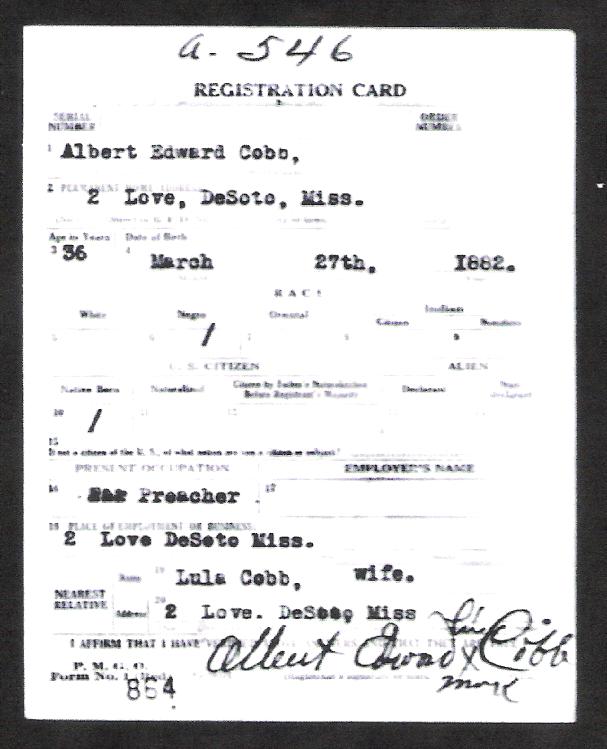 a. 546
REGISTRATION CARD
SERIAL NUMBER ORDER NUMBER
1 Albert Edward Cobb,
2 PERMANENT HOME ADDRESS
2 Love, DeSoto, Miss.
Age in Years Date of Birth
3 36 4 March 27th, I882.
RACE
White Negro Oriental Indian
Citizen
5 6 / 7 8 9
U. S. CITIZEN ALIEN
Native Born Naturalized Citizen by Father's Naturalization Before Registrant's Majority Declarant Non-declarant
10 / 11 12
15
If not a citizen of the U. S., of what nation are you a citizen or subject?
PRESENT OCCUPATION EMPLOYER'S NAME
16 Preacher . 17
18 PLACE OF EMPLOYMENT OR BUSINESS
2 Love DeSoto Miss.
NEAREST RELATIVE
Name 19 Lula Cobb, wife.
Address 20 2 Love. DeSoto Miss
I AFFIRM THAT I HAVE
P. M. G. O.
Form No. 1 (Red)
Albert Edward X Cobb
his
mark
864